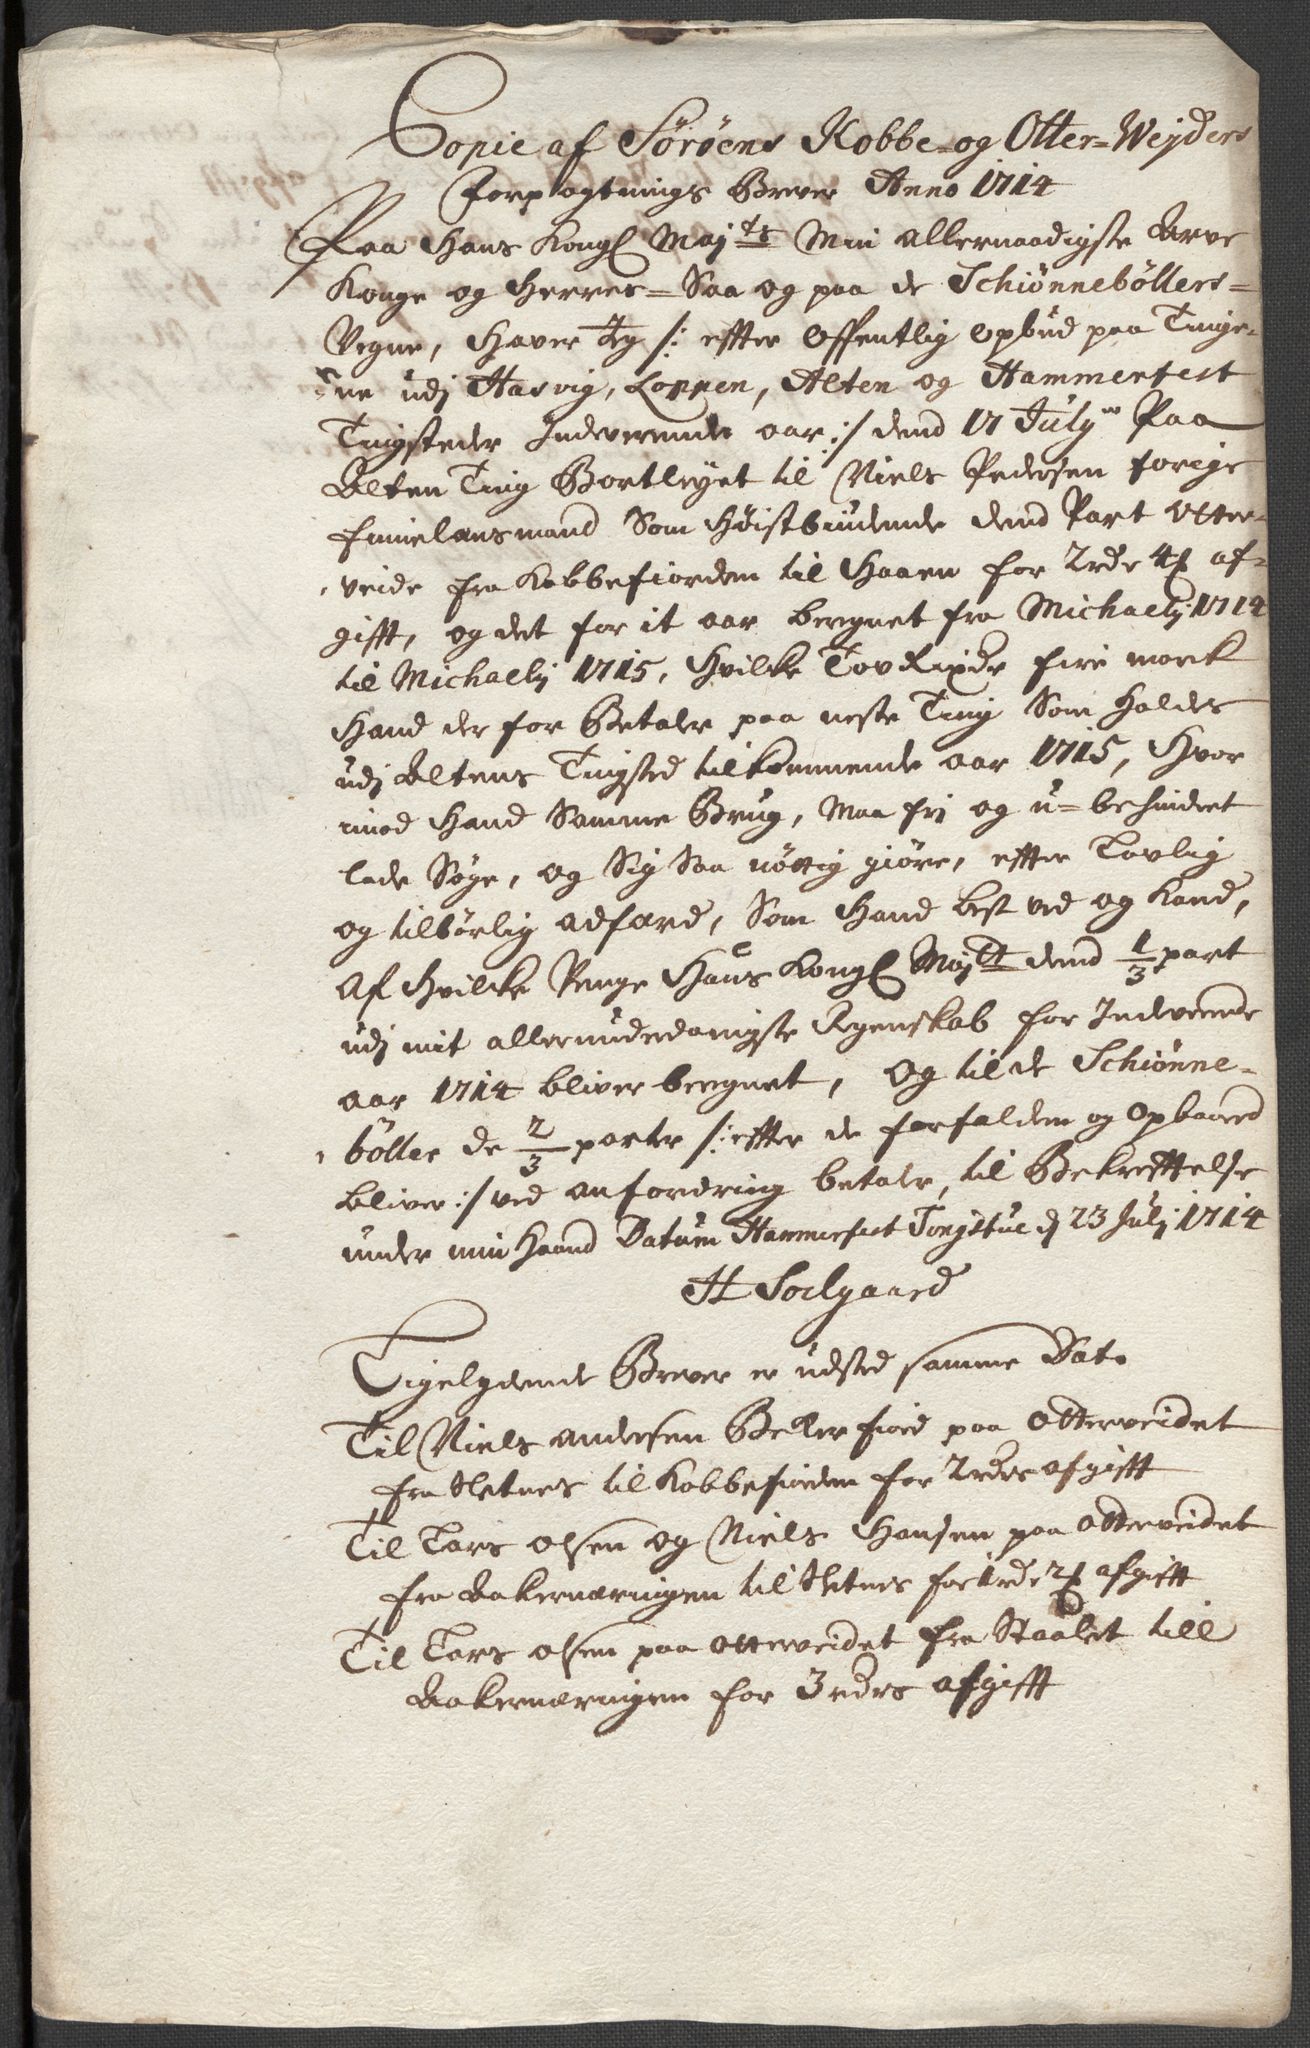 Copie af Sörøens Kobbe- og Otter-Weyders
Forpagtnings Brever Anno 1714
Paa Hans Kongl Majts Min allernaadigste Arve
Konge og Herres- Saa og paa de Schiønnebøllers-
Vegne, Haver Jeg /: effter Offentlig Opbud paa Tinge-
ne udj Hasvig, Loppen, Alten og Hammerfest
Tingsteder Indeverende aar :/ dend 17 July Paa
Alten Ting Bortleyet til Niels Pedersen forige
finnelansmand Som Høistbiudende dend Part Otter-
veide fra Kobbefiorden til Haaen for 2 rdr 4 af-
gifft, og det for it aar beregnet fra Michaelj 1714
til Michaelj 1715, Hvilke Tov Rixdr fire mark
Hand der for Betaler paa neste Ting Som Holdes
udj Altens Tingsted tilkommende aar 1715, Hvor
imod Hand Samme Brug, Maa frj og u-behindret
lade Søge, og Sig Saa nöttig giöre, effter Lovlig
og tilbørlig adfærd, Som Hand best ved og Kand,
Af Hvilke Penge Hans Kongl Majtt dend 1/3 part
udj mit allerunderdanigste Regenskab for Indverende
aar 1714 bliver beregnet, Og til de Schiønne-
böller de 2/3 parter /: effter de forfalden og Opbaared
bliver :/ ved anfordring betaler, til Bekrefftelse
under min Haand Datum Hammerfest Tingstue d 23 Julj 1714
H Soelgaard
Ligelydende Brever er udsted samme Dato
Til Niels Andersen Bekkerfiord paa Otterveidet
fra Sletnes til Kobbefiorden for 2 rdrs afgifft
Til Lars Olsen og Niels Hansen paa Otterveidet
fra Bakernæringen til Sletnes for 1 rdr 2 afgifft
Til Lars Olsen paa Otterveidet fra Staalet till
Bakernæringen for 3 rdrs afgifft